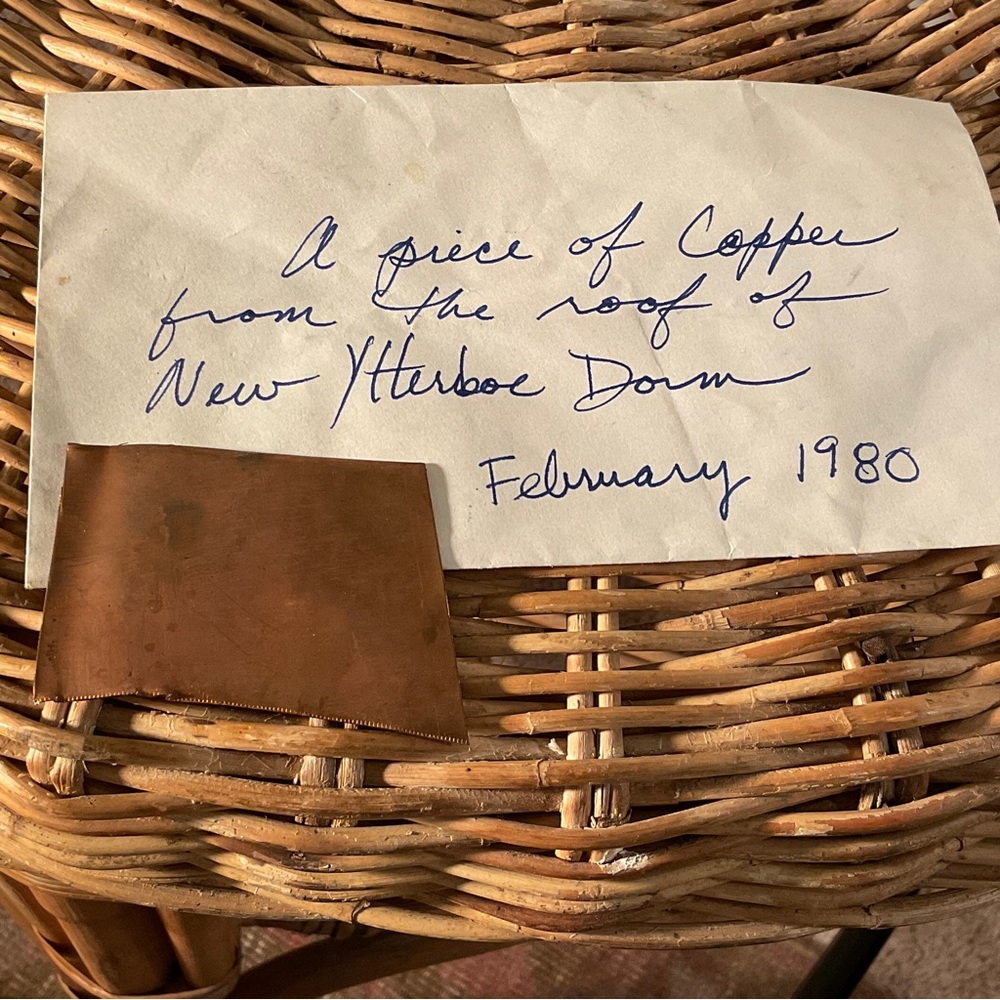 A piece of Copper
from the roof of
New Ytterboe Dorm
February 1980